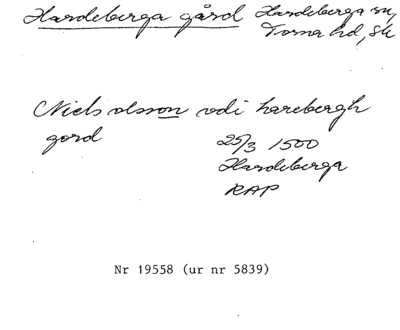 Hardeberga gård Hardeberga sn,
Torna hd, Sk
Niels olsson vdi harebergh
gord
25/3 1500
Hardeberga
RAP
Nr 19558 (ur nr 5839)